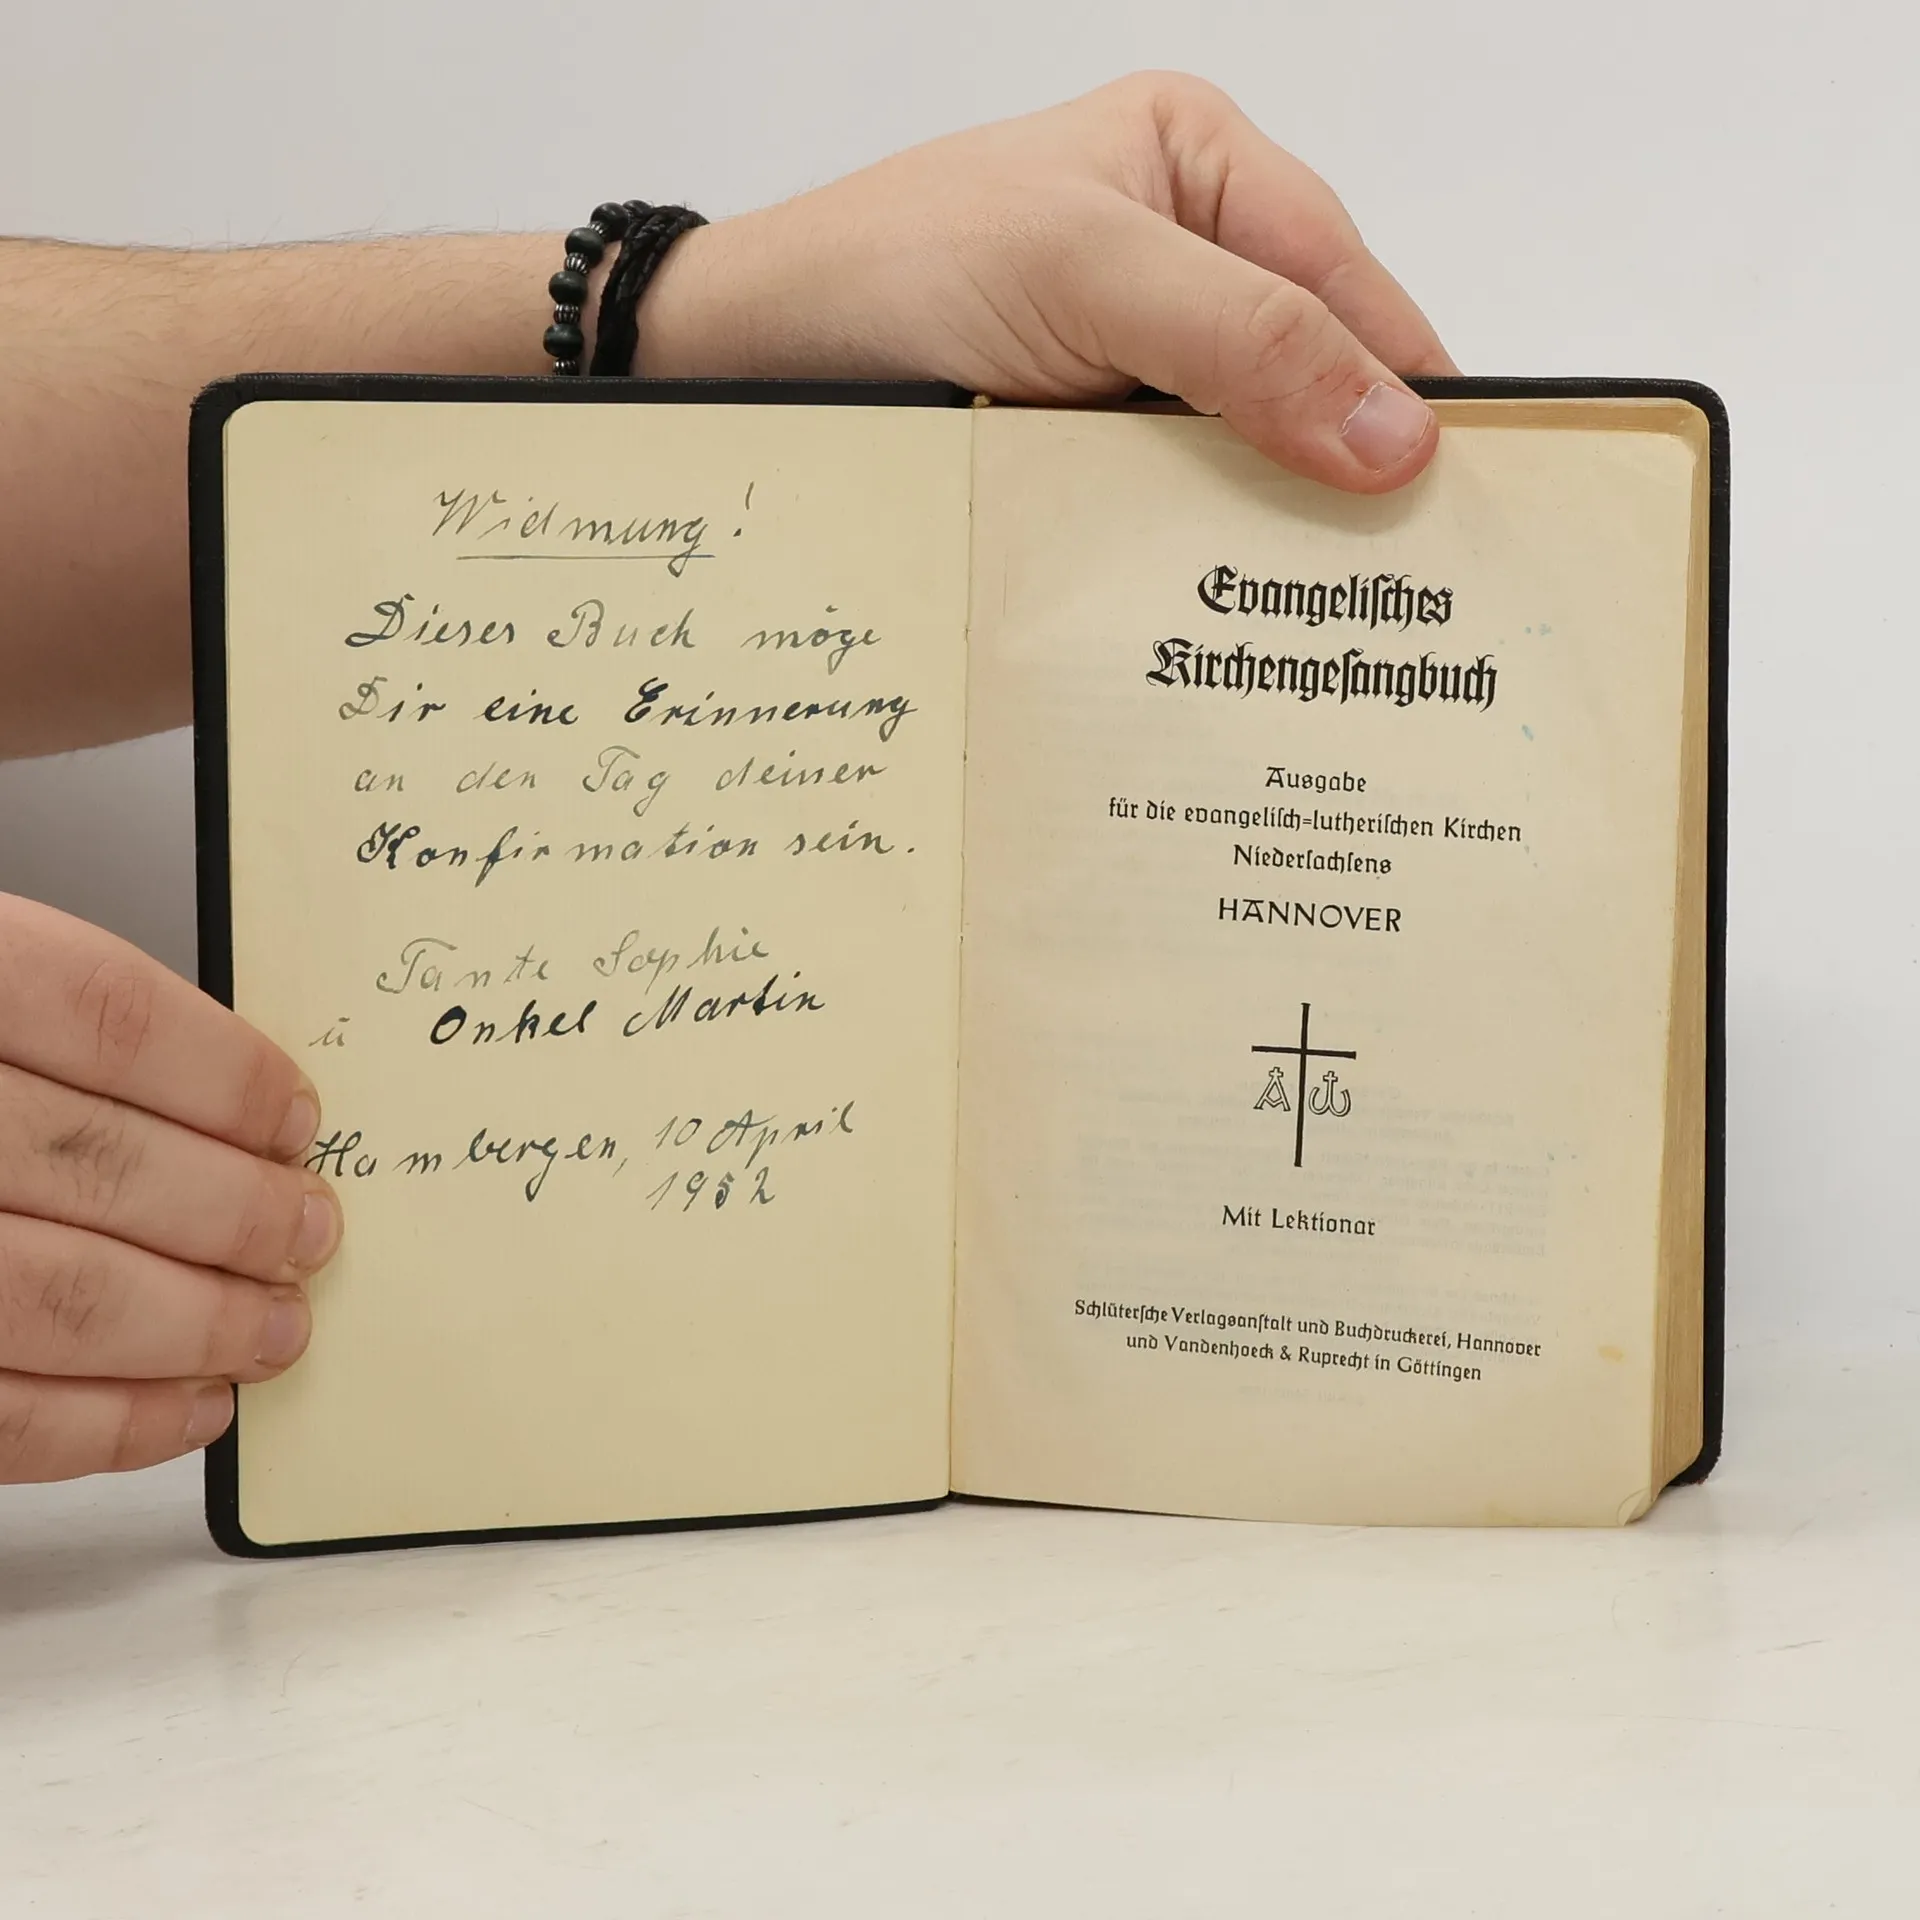 Widmung!
Dieses Buch möge
Dir eine Erinnerung
an den Tag deiner
Konfirmation sein.
Tante Sophie
u Onkel Martin
Hambergen, 10 April
1952
Evangeliſches
Kirchengeſangbuch
Ausgabe
für die evangeliſch=lutheriſchen Kirchen
Niederſachſens
HANNOVER
A ω
Mit Lektionar
Schlüterſche Verlagsanſtalt und Buchdruckerei, Hannover
und Vandenhoeck & Ruprecht in Göttingen